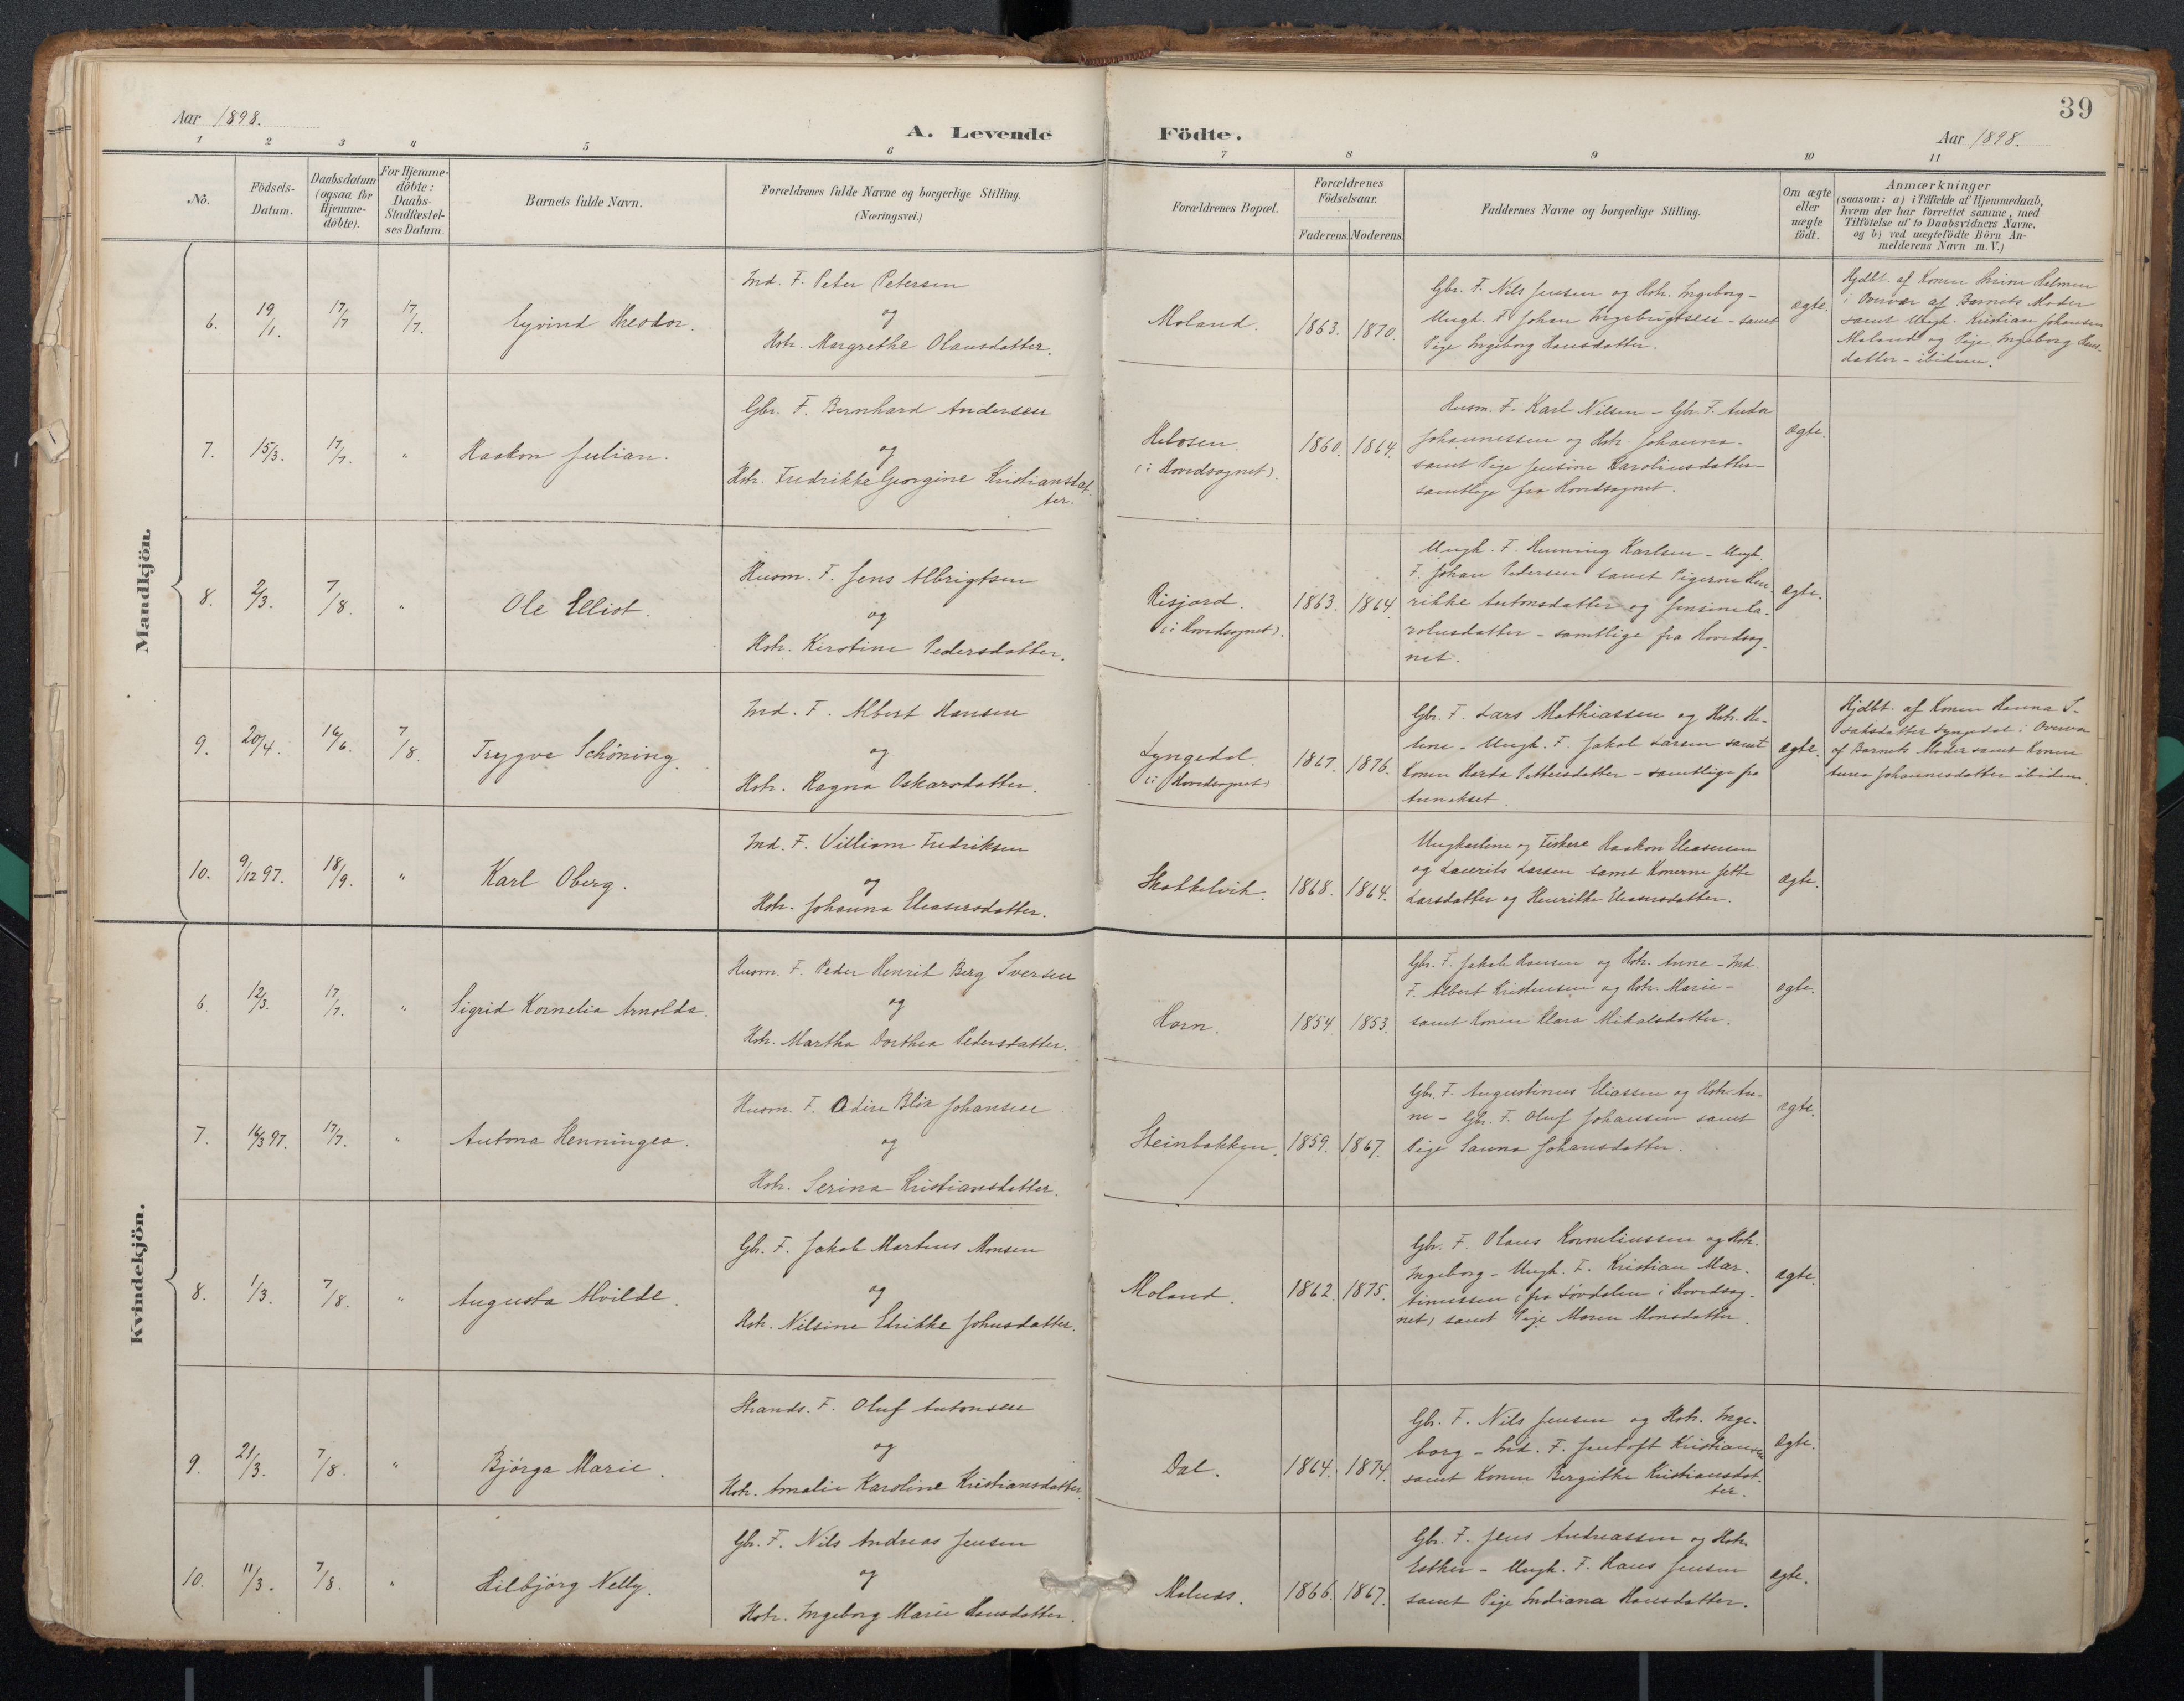 39
Aar 1898.
A. Levende Födte.
Aar 1898.
1 2 3 4 5 6 7 8 9 10 11
No.
Födsels-Datum.
Daabsdatum (ogsaa for Hjemme-döbte).
For Hjemme-döbte: Daabs-Stadfæstel-ses Datum.
Barnets fulde Navn.
Forældrenes fulde Navne og borgerlige Stilling.
(Næringsvei.)
Forældrenes Bopæl.
Forældrenes Födselsaar.
Faderens. Moderens.
Faddernes Navne og borgerlige Stilling.
Om ægte eller uægte födt.
Anmærkninger
(saasom: a) i Tilfælde af Hjemmedaab,
hvem der har forrettet samme, med
Tilföielse af to Daabsvidners Navne.
og b) ved uægtefödte Börn An-
melderens Navn m. V.)
Mandkjön.
6. 19/1. 17/7 17/7. Eyvind Theodor.
Ind. F. Peter Petersen
og
Hstr. Margrethe Olausdatter.
Moland. 1863. 1870.
Gbr. F. Nils Jensen og Hstr. Ingeborg -
Ungk. F. Johan Ingebrigtsen - samt
Pige Ingeborg Hansdatter.
ægte.
Hjdbt. af Konen
i Overvær af Barnets Moder
samt Ungk. Kristian Johansen
Moland og Pige Ingeborg Hans-
datter - ibidem.
7. 15/3. 17/7. " Haakon Julian.
Gbr. F. Bernhard Andersen
og
Hstr. Fredrikke Georgine Kristiansdat-
ter.
(i Hovedsognet).
1860. 1864.
Husm. F. Karl Nilsen - Gbr. F. Andor
Johannessen og Hstr. Johanna -
samt Pige Jensine Karolinsdatter -
samtlige fra Hovedsognet.
ægte.
8. 2/3. 7/8. " Ole Elliot.
Husm. F. Jens Albrigtsen
og
Hstr. Kirstine Pedersdatter.
Risjord.
(i Hovedsognet).
1863. 1864
Ungk. F. Henning Karlsen - Ungk.
F. Johan Pedersen samt Pigerne Hen-
rikke Antonsdatter og Jensine Ka-
rolusdatter - samtlige fra Hovedsog-
net.
ægte.
9. 20/4. 16/6. 7/8. Trygve Schöning.
Ind. F. Albert Hansen
og
Hstr. Ragna Oskarsdatter.
Lyngedal
(i Hovedsognet)
1867. 1876.
Gbr. F. Lars Mathiassen og Hstr. He-
lene - Ungk. F. Jakob Larsen samt
Konen Harda Pettersdatter - samtlige fra
Annekset.
ægte.
Hjdbt. af Konen Hanna I-
saksdatter Lyngedal i Overvær
af Barnets Moder samt Konen
Anna Johannesdatter ibidem.
10. 9/12 97. 18/9. " Karl Oberg.
Ind. F. Villiam Fredriksen
og
Hstr. Johanna Eleasersdatter.
1868. 1864.
Ungkarlene og Fiskere Haakon Eleasersen
og Laurits Larsen samt Konerne Jette
Larsdatter og Henrikke Eleasersdatter.
ægte.
Kvindekjön.
6. 12/3. 17/7. " Sigrid Kornelia Arnolda.
Husm. F. Peder Henrik Berg Iversen
og
Hstr. Martha Dorthea Pedersdatter.
Horn. 1854. 1853.
Gbr. F. Jakob Hansen og Hstr. Anne - Ind.
F. Albert Kristensen og Hstr. Marie -
samt Konen Klara Mikalsdatter.
ægte.
7. 16/3 97. 17/7. " Antona Henningea.
Husm. F. Odin Blix Johansen
og
Hstr. Serina Kristiansdatter.
Steinbakken. 1859. 1867.
Gbr. F. Augustinus Eliassen og Hstr. An-
ne - Gbr. F. Oluf Johansen samt
Pige Sanna Johansdatter.
ægte.
8. 1/3. 7/8. " Augusta Alvilde.
Gbr. F. Jakob Martinus Monsen
og
Hstr. Nilsine Elrikke Johnsdatter.
Moland. 1862. 1875.
Gbr. F. Olaus Korneliussen og Hstr.
Ingeborg - Ungk. F. Kristian Mar-
tinussen (fra Lövdalen i Hovedsog-
net) samt Pige Maren Monsdatter.
ægte.
9. 21/3. 7/8. " Bjórga Marie.
Strands. F. Oluf Antonsen
og
Hstr. Amalie Karoline Kristiansdatter.
Dal. 1864. 1874.
Gbr. F. Nils Jensen og Hstr. Inge-
borg - Ind. F. Jentoft Kristiansen
samt Konen Bergithe Kristiansdat-
ter.
ægte.
10. 11/3. 7/8. " Hilbjórg Nelly.
Gbr. F. Nils Andreas Jensen
og
Hstr. Ingeborg Marie Hansdatter.
1866. 1867.
Gbr. F. Jens Andreassen og Hstr.
Esther - Ungk. F. Hans Jensen
samt Pige Indiana Hansdatter.
ægte.